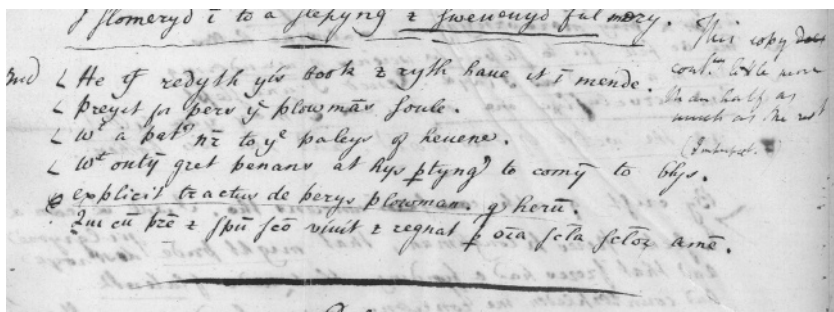 I slomeryd ī to a slepyng & swevenyd ful mery.
End
He yͭ redyth yis book & ryth haue it ī mende.
Preyet for pers yͤ plowmās soule.
Wͭ a patͬ nr̄ to yͤ paleys of heuene.
Wͭ outȳ gret penans at hys ptyng to comȳ to blys.
explicit tractus de perys plowman. q herū.
Qui cū prē & spū sco vivit & regnat p oīa scla sclor amē.
This copy
contˢ little more
than half as
much as the rest